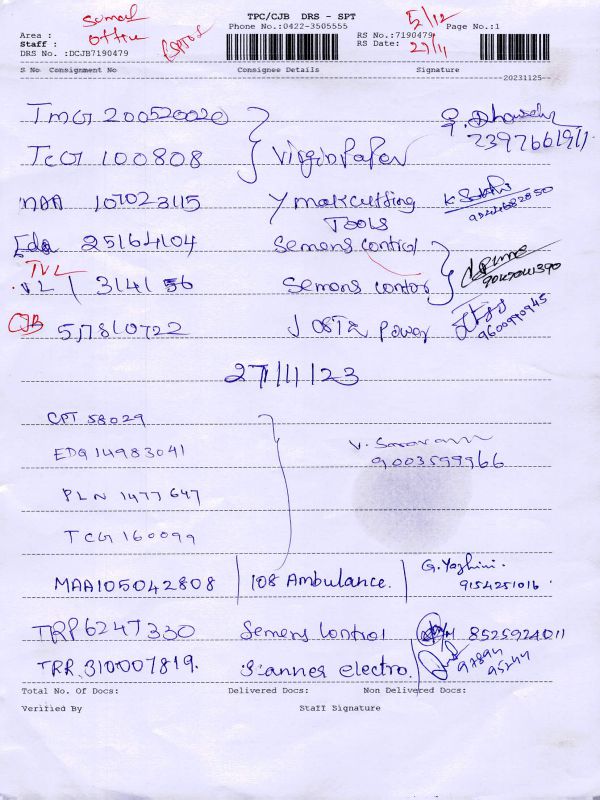 TPC/CJB DRS - SPT
Phone No.:0422-3505555
5/12
Page No.:1
Area :
Office
RS No.:7190479
Staff :
RS Date:
27/11
DRS No. :DCJB7190479
S No Consignment No Consignee Details Signature
--20231125--
TMG 200520020
TCG 100808 Virgin Paper
MAA 107023115 Y mark cutting
TOOLS
25164104 Semens control
TVL
314156 Semens contor
9600990945
CJB 517810722 Power
27/11/23
CPT 58029
EDG 14983041
V. Saravann
9003599966
PLN 1477647
TCG 160099
MAA105042808 108 Ambulance. G. Yazhini.
9154251016
TRP6247330 Semens control 8525924011
TRR. 310007819. Scanner electro. 97894
95244
Total No. Of Docs: Delivered Docs: Non Delivered Docs:
Verified By Staff Signature